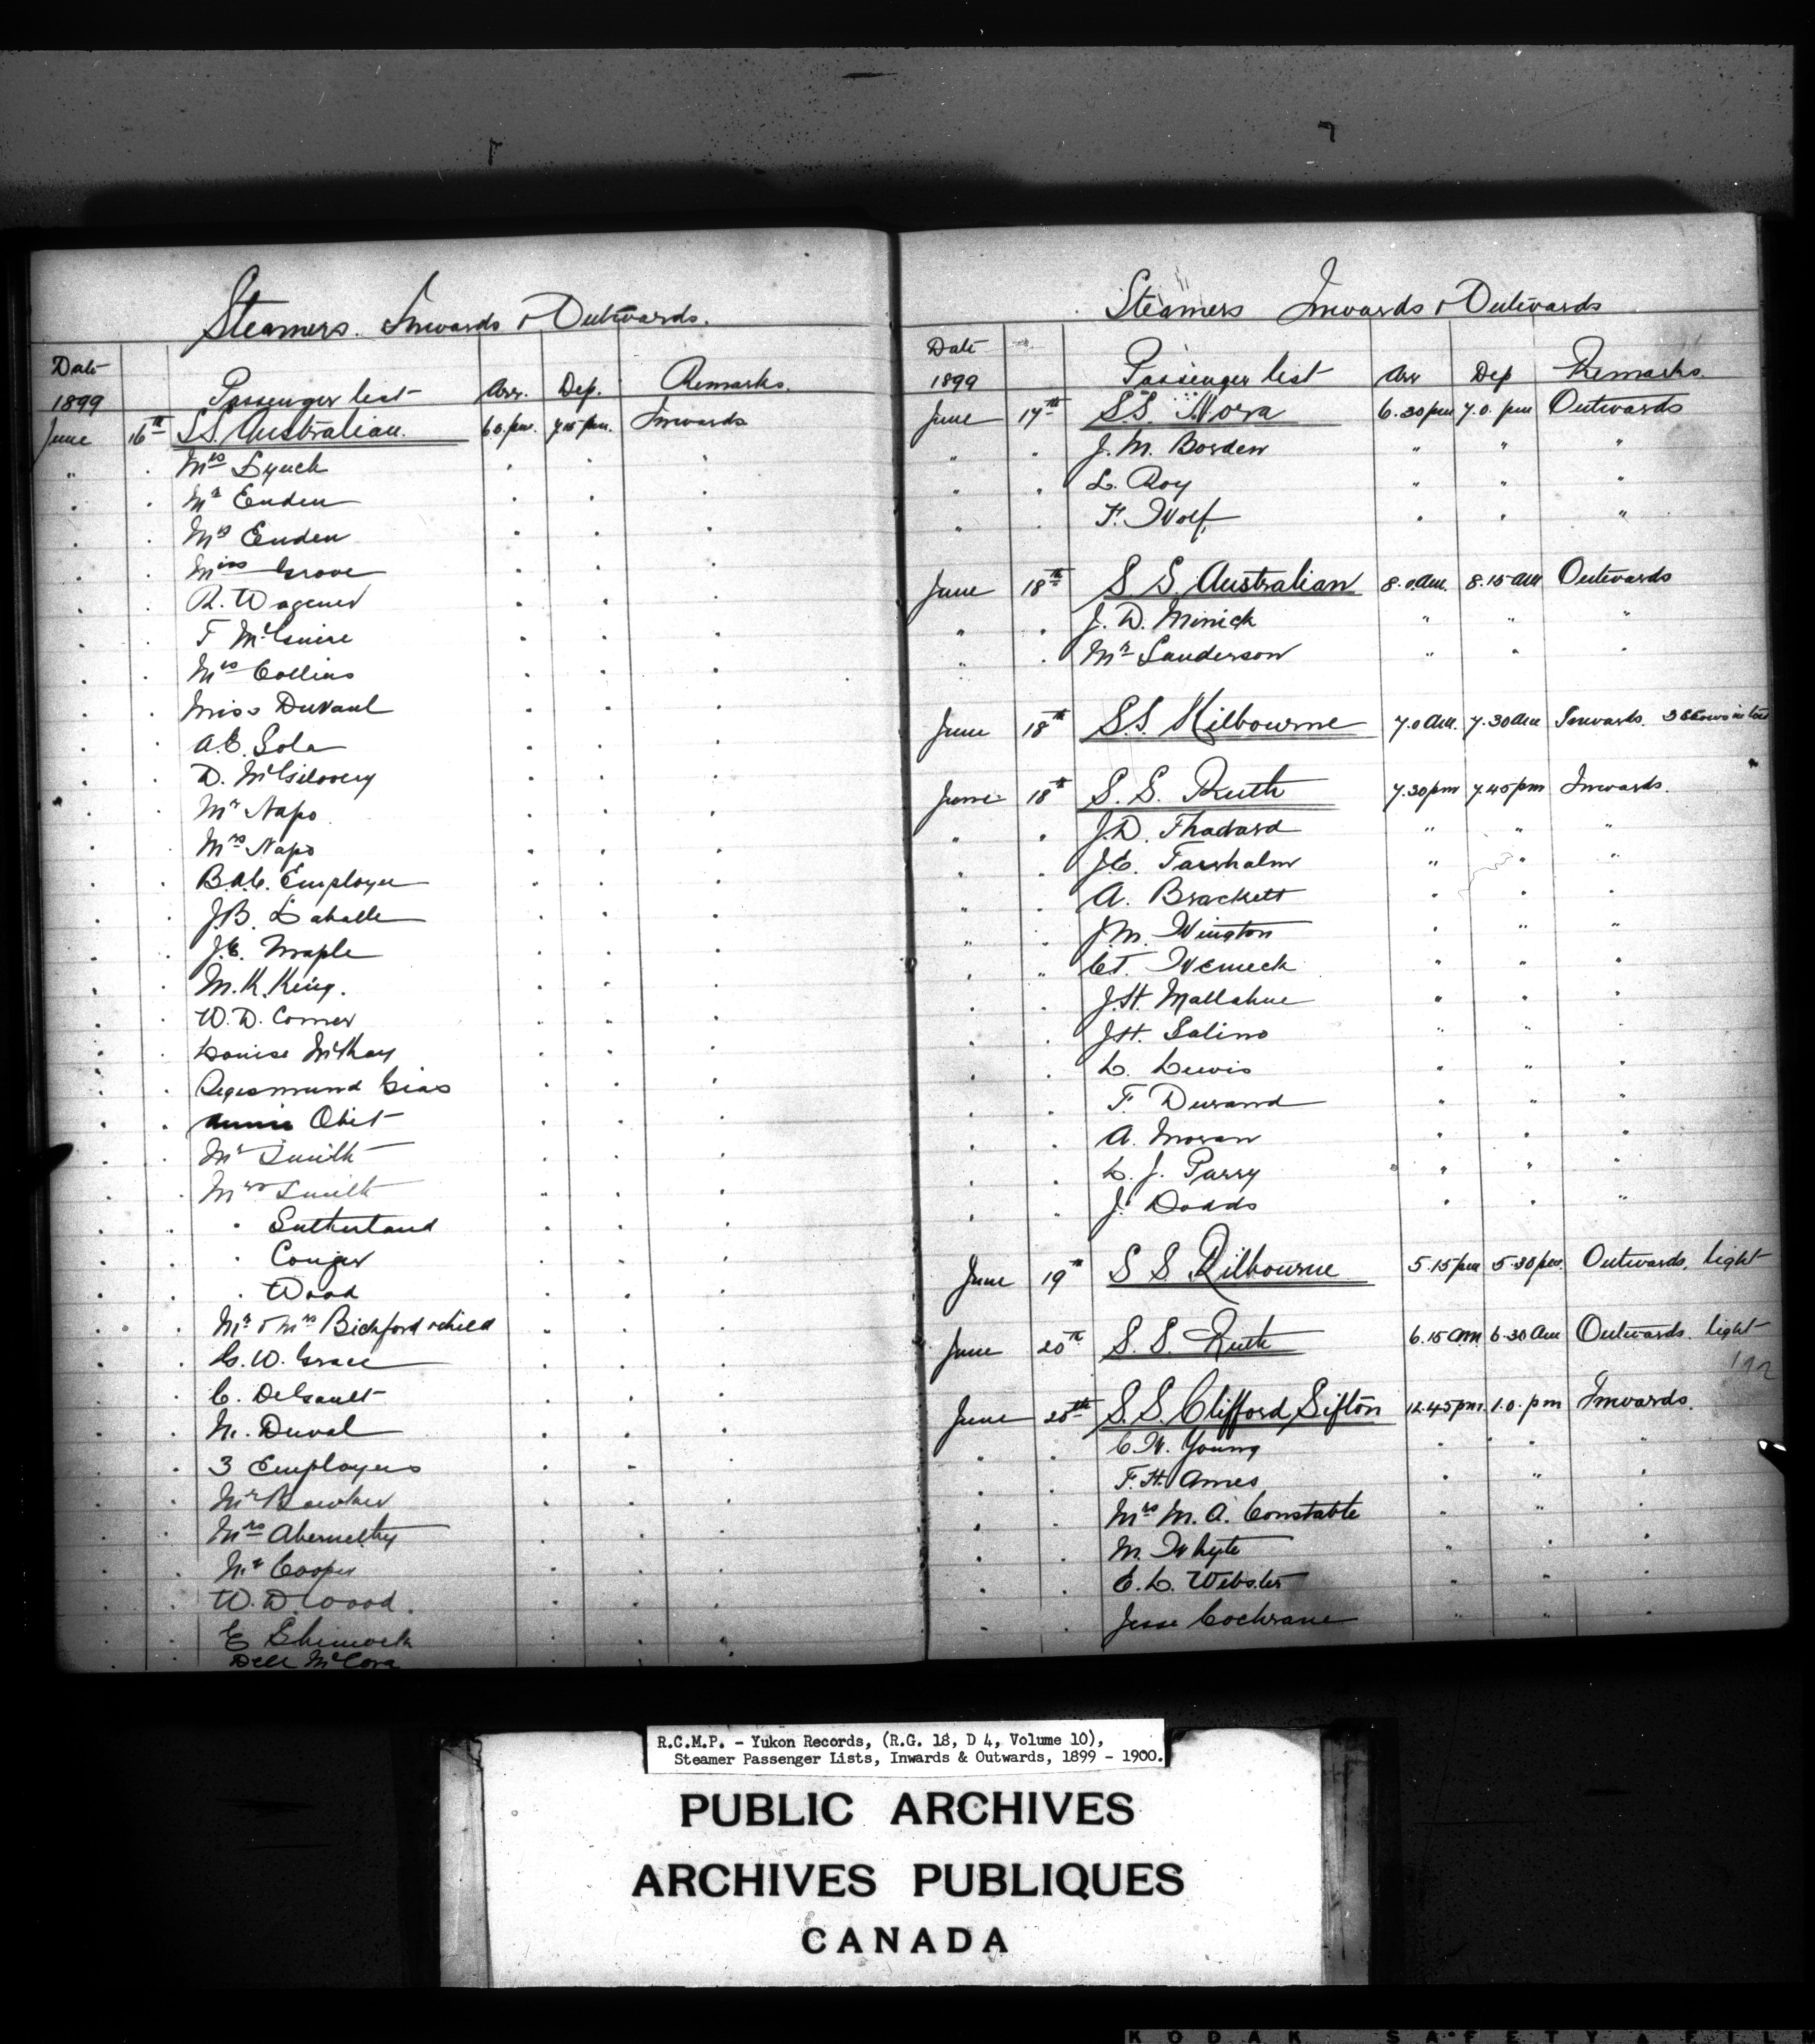 Steamers. Inwards & Outwards.
Date
1899 Passenger list Arr. Dep. Remarks.
June 16th S.S. Australian. 6.0.pm. 7.15 pm. Inwards
" . Mrs Lynch . . .
. . Mr Enden . . .
. . Mrs Enden . . .
. . Miss Grove . . .
. . R. Wagener . . .
. . F McGuire . . .
. . Mrs Collins . . .
. . Miss Duvaul . . .
. . A.E. Sola . . .
. . D. McGilovery . . .
. . Mr Napo . . .
. . Mrs Napo . . .
. . B.A.C. Employee . . .
. . J.B. Laballe . . .
. . J.E. Maple . . .
. . M.K. King. . . .
. . W.D. Comer . . .
. . Louise McKay . . .
. . Gias . . .
. . Annie Obit . . .
. . Mr Smith . . .
. . Mrs Smith . . .
. " " Sutherland . . .
. . " Conger . . .
. . " Wood . . .
. . Mr & Mrs Bickford & child " . .
. . C.W. Grace . . .
. . C. DeGault . . .
. . N. Duval . . .
. . 3 Employees . . .
. . Mr Bowker . . .
. . Mrs Abernethy . . .
. . Mr Cooper . . .
. . W.D. Wood. . . .
. . E . . .
. . Dell McCova . . .
Steamers Inwards & Outwards
Date
1899 Passenger list Arr Dep Remarks.
June 17th S.S. Nora 6.30pm 7.0. pm Outwards
" . J.M. Borden " " "
" . L. Roy " " "
" . F. Wolf. " " "
June 18th S.S. Australian 8.0.am. 8.15 am Outwards
" . J.D. Minick " " "
" . Mr Sanderson " " "
June 18th S.S. Kilbourne 7.0 am. 7.30 am Inwards. 3 Scows in tow
June 18th S.S. Ruth 7.30pm 7.45pm Inwards.
" . J.D. Thadard " " "
. . J.C. Farrhalm " " "
" . A. Brackett " " "
" . J.M. Wington " " "
. " C.T. Wemeck " " "
. . J.H. Mallahue " " "
. . J.H. Salino " " "
. . L. Lewis " " "
. . F. Durand " " "
. . A. Moran " " "
. . L.J. Parry " " "
. " J. Dodds " " "
June 19th S S Kilbourne 5.15pm 5.30pm. Outwards. light
June 20th S.S. Ruth 6.15 am 6.30 am Outwards. light
June 20th S.S. Clifford Sifton 12.45pm. 1.0. pm Inwards.
" . C.W. Young " " "
. . F.H. Ames " " "
. . Mrs M.A. Constable " " "
. . M. Whyte " " "
. . E.L. Webster " " "
. . Jesse Cochrane " " "
R.C.M.P. - Yukon Records, (R.G. 18, D 4, Volume 10),
Steamer Passenger Lists, Inwards & Outwards, 1899 - 1900.
PUBLIC ARCHIVES
ARCHIVES PUBLIQUES
CANADA
KODAK SAFETY FIL